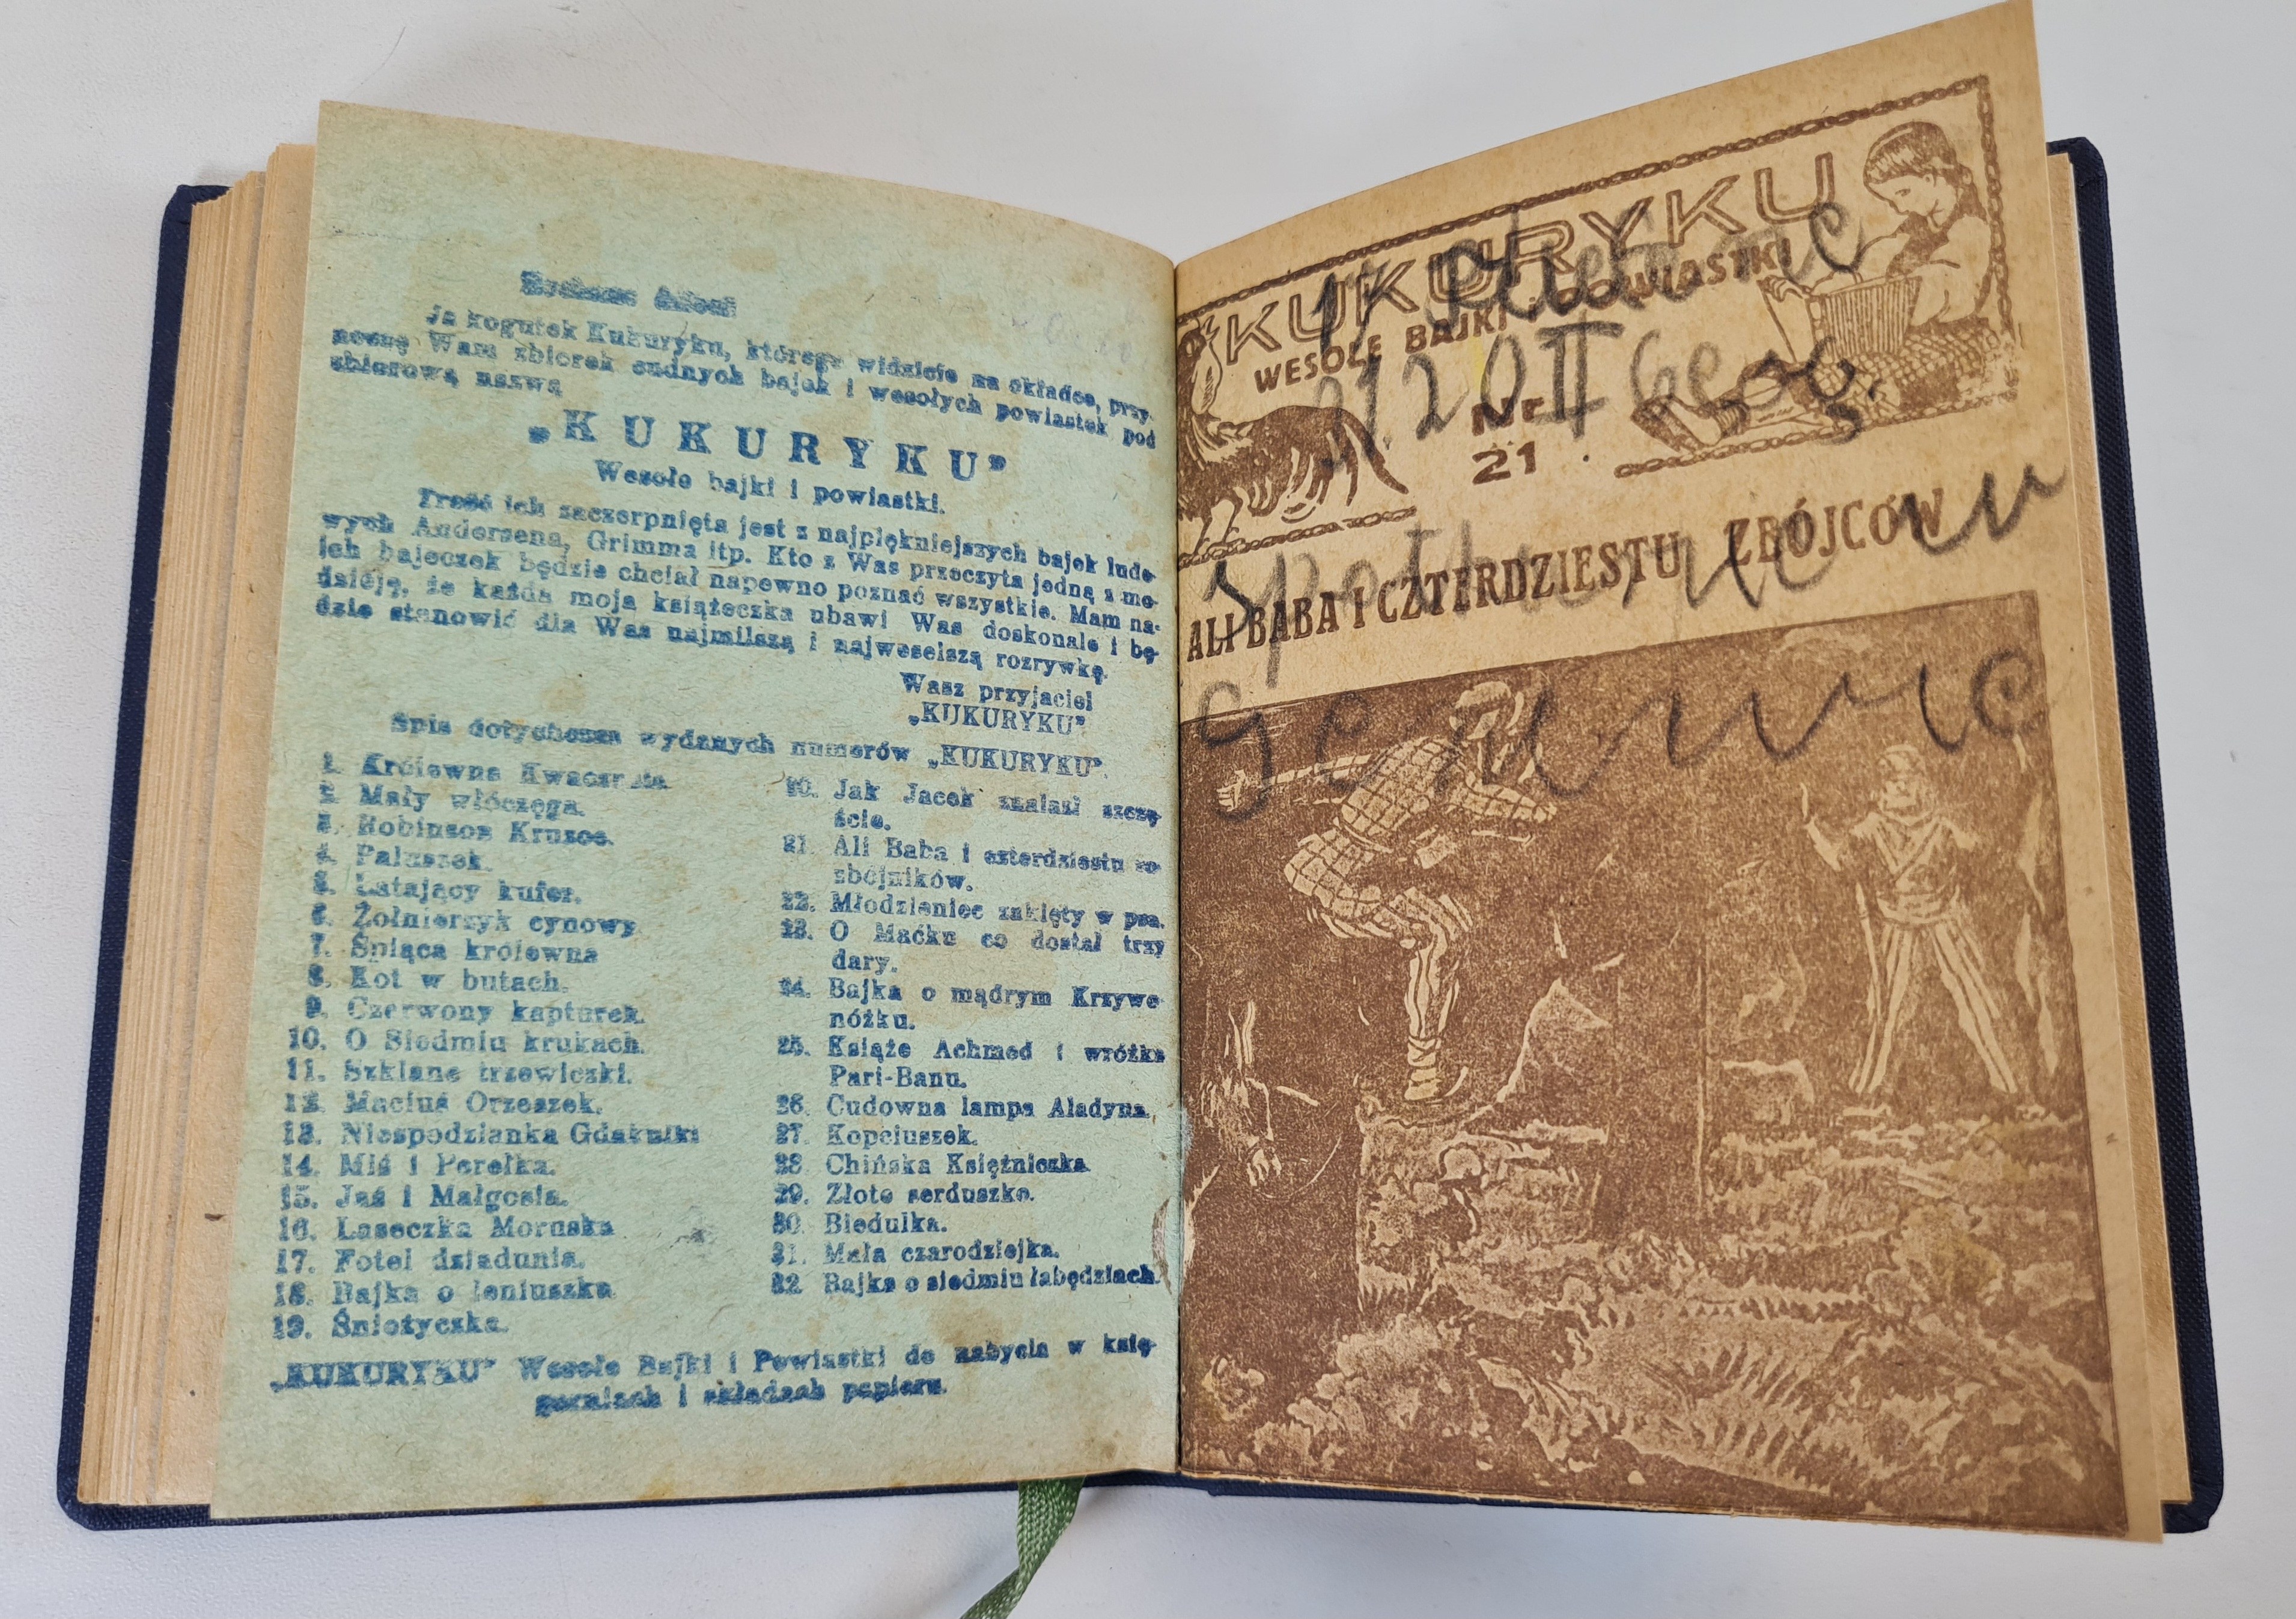 Kochane dzieci
Ja kogutek Kukuryku, którego widzicie na okładce, przy-
noszę Wam zbiorek cudnych bajek i wesołych powiastek pod
zbiorową nazwą
„KUKURYKU”
Wesołe bajki i powiastki.
Treść ich zaczerpnięta jest z najpiękniejszych bajek ludo-
wych Andersena, Grimma itp. Kto z Was przeczyta jedną z mo-
ich bajeczek będzie chciał napewno poznać wszystkie. Mam na-
dzieję, że każda moja książeczka ubawi Was doskonale i bę-
dzie stanowić dla Was najmilszą i najweselszą rozrywkę.
Wasz przyjaciel
„KUKURYKU”
Spis dotychczas wydanych numerów „KUKURYKU”.
1. Królewna
2. Mały włóczęga.
3. Robinson Kruzoe.
4. Paluszek.
5. Latający kufer.
6. Żołnierzyk cynowy
7. Śpiąca królewna
8. Kot w butach.
9. Czerwony kapturek.
10. O Siedmiu krukach.
11. Szklane trzewiczki.
12. Maciuś Orzeszek.
13. Niespodzianka Gdakulki
14. Miś i Perełka.
15. Jaś i Małgosia.
16. Laseczka Moruska
17. Fotel dziadunia.
18. Bajka o leniuszku
19. Śnieżyczka.
20. Jak Jacek znalazł szczę-
ście.
21. Ali Baba i czterdziestu ro-
zbójników.
22. Młodzieniec zaklęty w psa.
23. O Maćku co dostał trzy
dary.
24. Bajka o mądrym Krzywo-
nóżku.
25. Książe Achmed i wróżka
Pari-Banu.
26. Cudowna lampa Aladyna.
27. Kopciuszek.
28. Chińska Księżniczka
29. Złote serduszko.
30. Biedulka.
31. Mała czarodziejka.
32. Bajka o siedmiu łabędziach.
„KUKURYKU” Wesołe Bajki i Powiastki do nabycia w księ-
garniach i składach papieru.
KUKURYKU
WESOŁE BAJKI I POWIASTKI
Nr
21
ALI BABA I CZTERDZIESTU ZBÓJCÓW
20 II